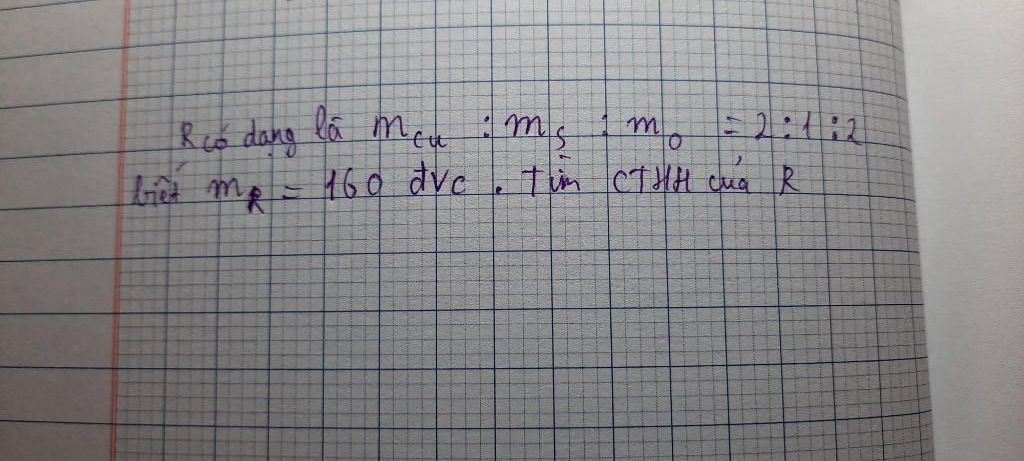 R có dạng là m_Cu : m_S : m_O = 2 : 1 : 2
biết m_R = 160 đvc . Tìm CTHH của R